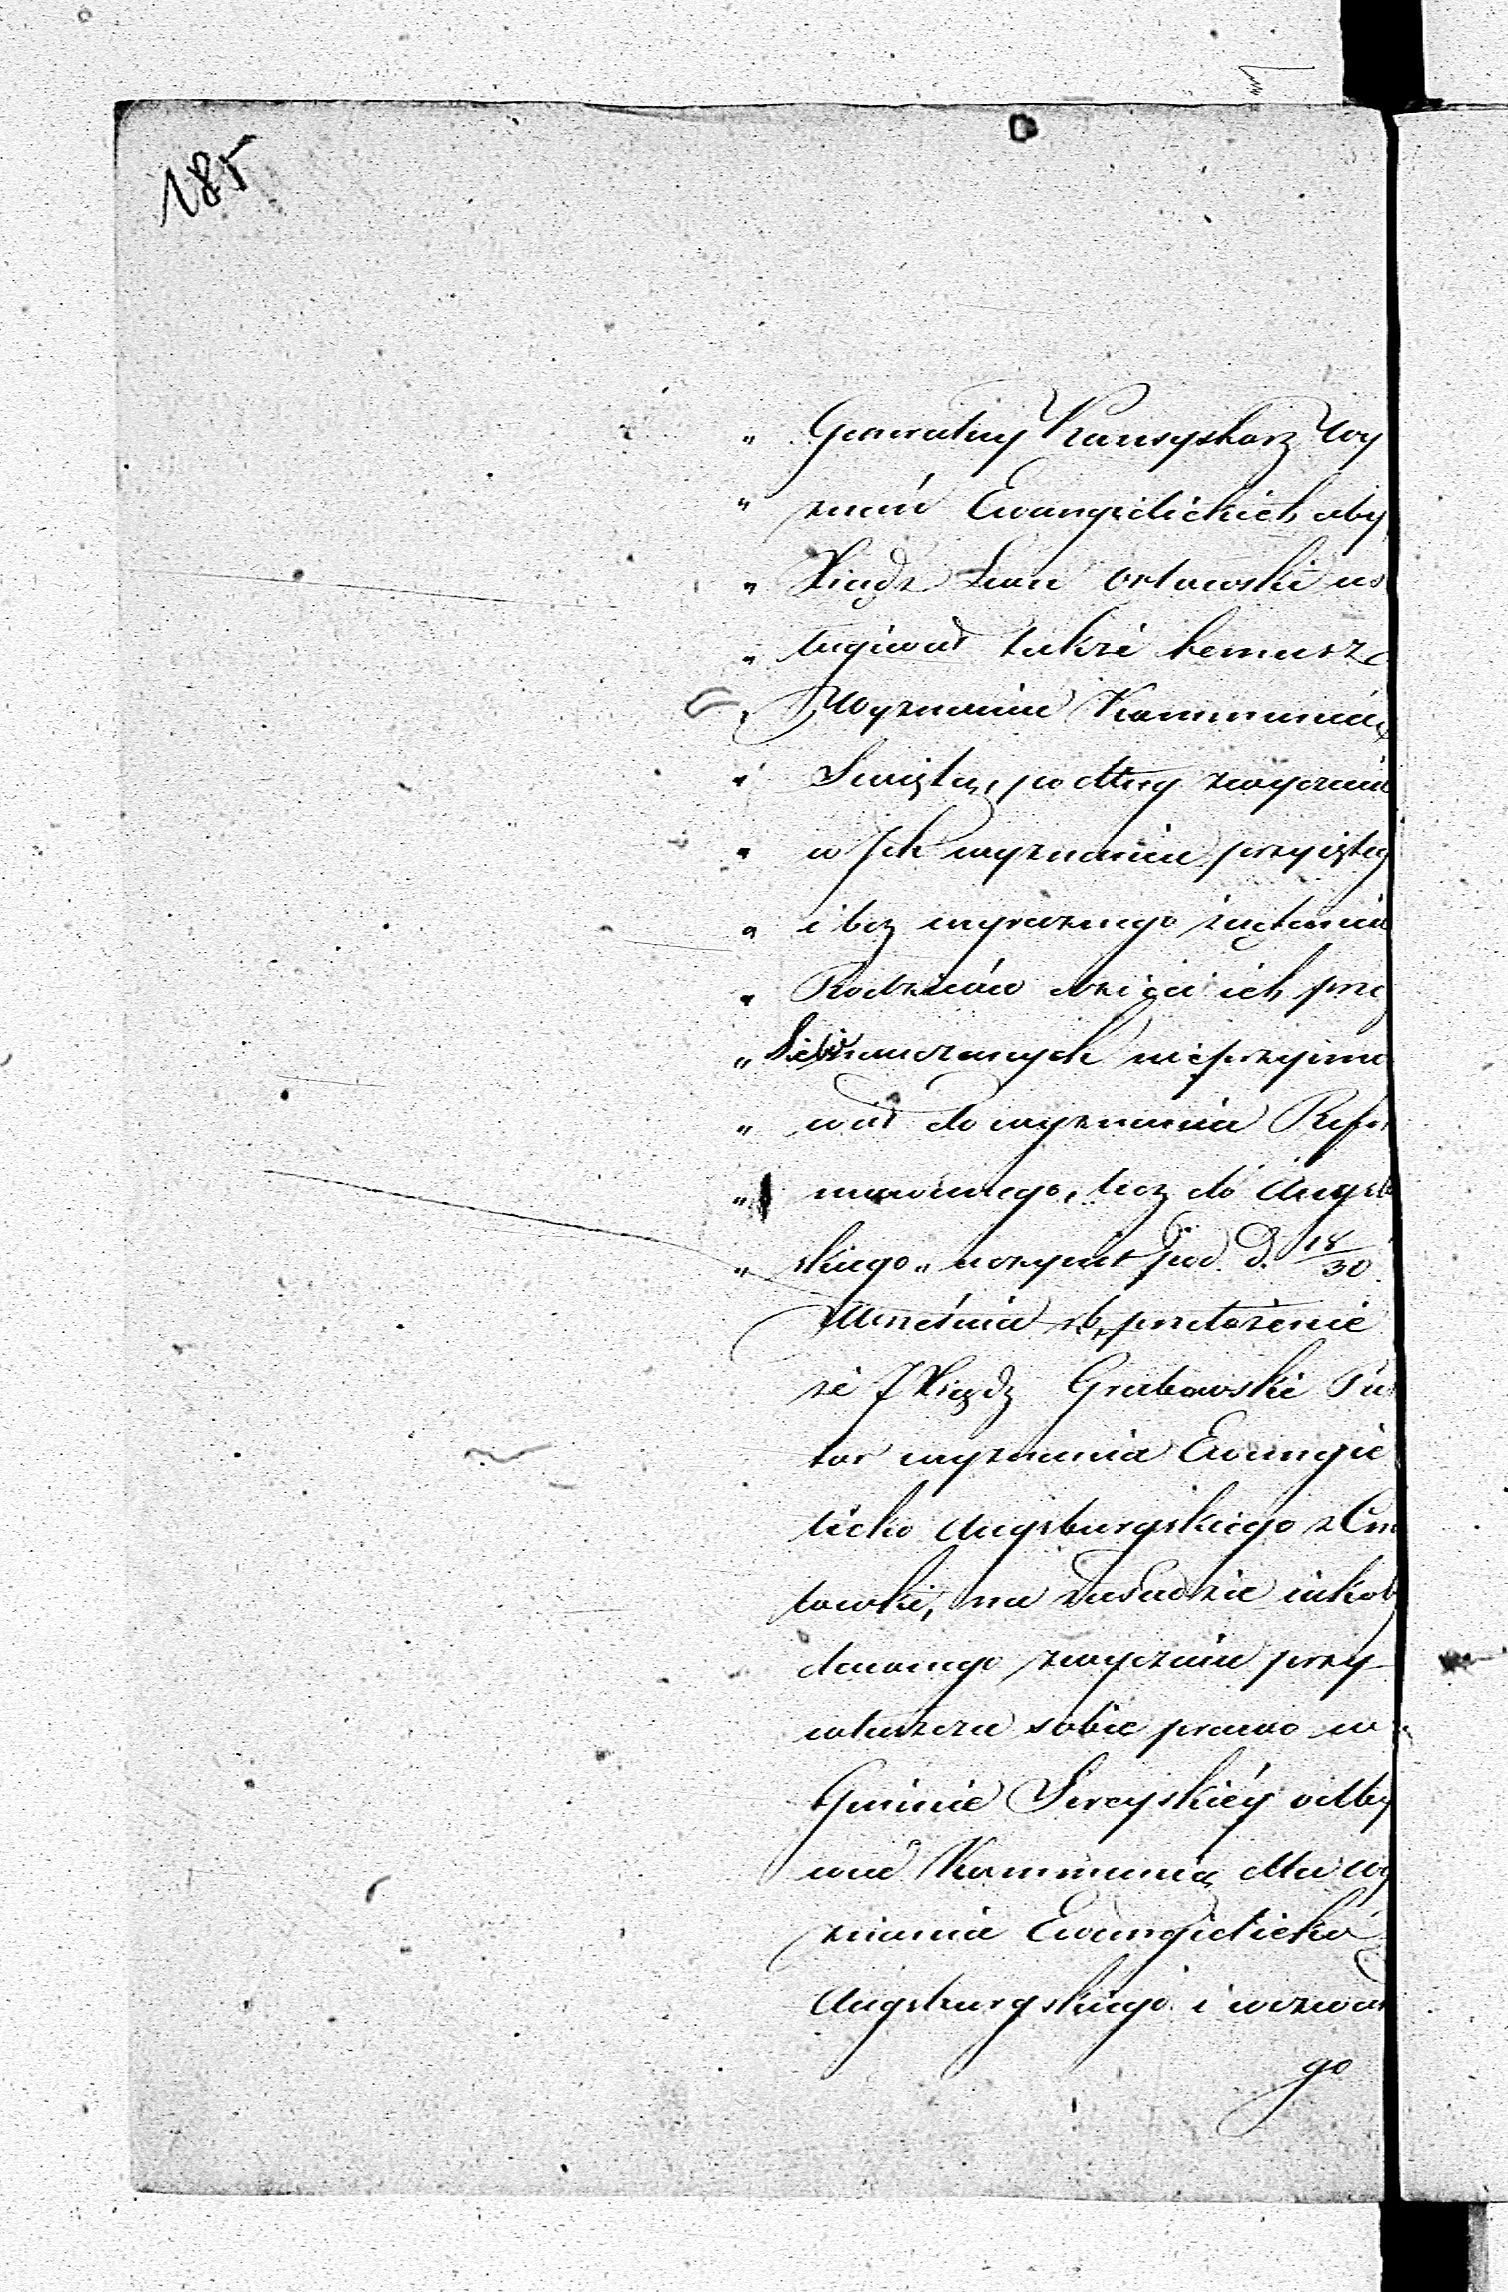 185
„ Generalny Konsystorz Wy
„ znań Ewangelickich aby
„ Xiądz Leon Orłowski us
„ ługiwał także temusz
„ Wyznaniu Kommunią
„ Swiętą, podług zwyczaiu
„ w Ich wyznaniu przyiętego
„ i bez wyraznego żądania
„ Rodziców dzieci ich prze
„ Siebie nauczanych nieprzyimo
„ wał do wyznania Refor
„ mowanego, lecz do Augsb
„ skiego „ uczynił pod d. 18/30
Września rb, przełożenie
że JXiądz Grabowski Pas
tor wyznania Ewangie
licko Augsburgskiego z
towki, na zasadzie iakob
dawnego zwyczaiu przy
właszcza sobie prawo w
Gminie Sereyskiéy odby
wać Kommunią dla Wy
znania Ewangielicko
Augsburgskiego i wzywał
go